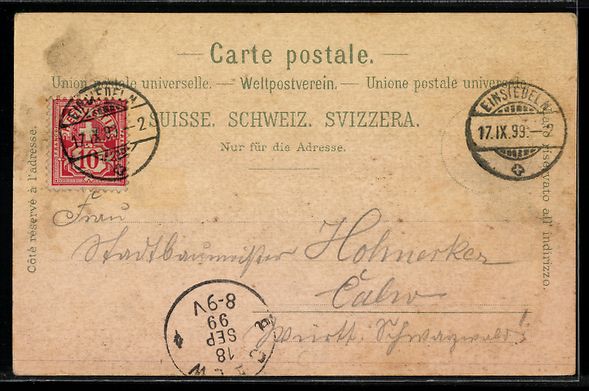 — Carte postale. —
Union postale universelle. — Weltpostverein. — Unione postale universale
SUISSE. SCHWEIZ. SVIZZERA.
Nur für die Adresse.
Côté réservé à l'adresse.
Lato riservato all' indirizzo.
EINSIEDELN
17.IX.99.-2
10
EINSIEDELN
17.IX.99.-2
Frau
Stadtbaumeister Hohnecker
Calw
Württ. Schwarzwald!
CALW
18
SEP
99
8-9V